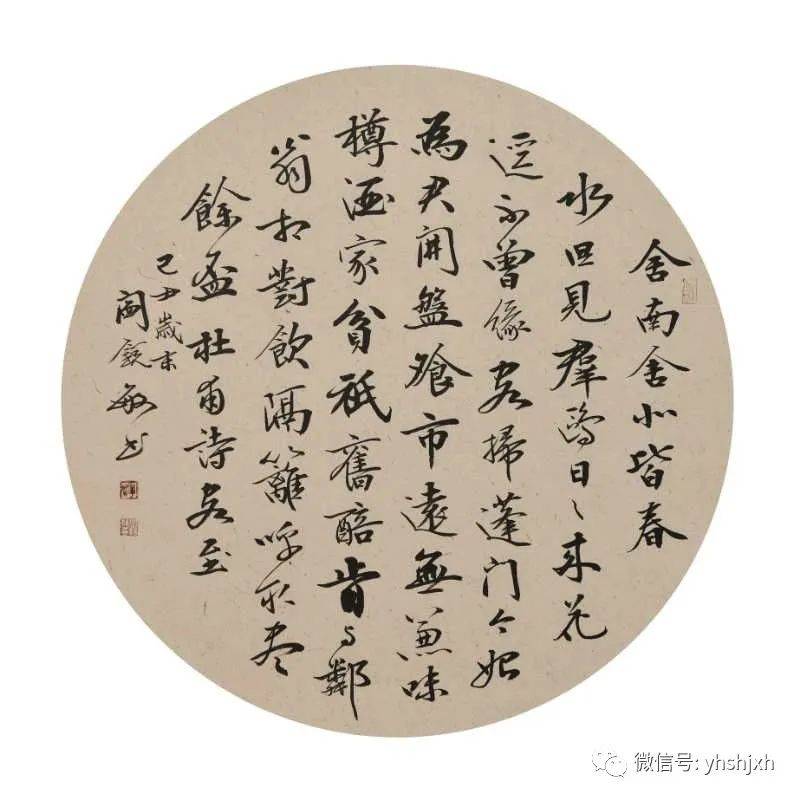 舍南舍北皆春
水但見羣鷗日々來花
逕不曾緣客掃蓬門今始
為君開盤飧市遠無兼味
樽酒家貧祇舊醅肯與鄰
翁相對飲隔籬呼取盡
餘盃杜甫詩客至
己丑歲末
敏書
微信号: yhshjxh